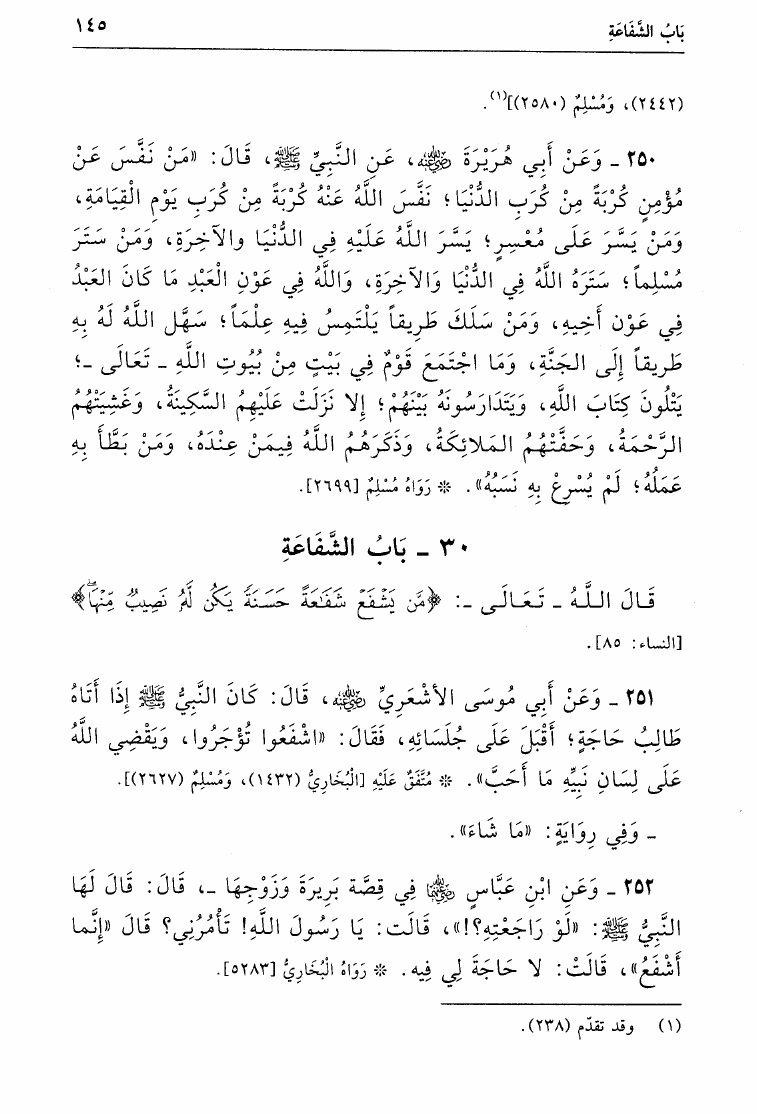 بَابُ الشَّفَاعَةِ ١٤٥
(٢٤٤٢)، وَمُسْلِمٌ (٢٥٨٠)](١).
٢٥٠ ـ وَعَنْ أَبِي هُرَيْرَةَ رضي الله عنه، عَنِ النَّبِيِّ ﷺ، قَالَ: «مَنْ نَفَّسَ عَنْ
مُؤْمِنٍ كُرْبَةً مِنْ كُرَبِ الدُّنْيَا؛ نَفَّسَ اللَّهُ عَنْهُ كُرْبَةً مِنْ كُرَبِ يَوْمِ الْقِيَامَةِ،
وَمَنْ يَسَّرَ عَلَى مُعْسِرٍ؛ يَسَّرَ اللَّهُ عَلَيْهِ فِي الدُّنْيَا والآخِرَةِ، وَمَنْ سَتَرَ
مُسْلِماً؛ سَتَرَهُ اللَّهُ فِي الدُّنْيَا وَالآخِرَةِ، وَاللَّهُ فِي عَوْنِ الْعَبْدِ مَا كَانَ العَبْدُ
فِي عَوْنِ أَخِيهِ، وَمَنْ سَلَكَ طَرِيقاً يَلْتَمِسُ فِيهِ عِلْمَاً؛ سَهَّلَ اللَّهُ لَهُ بِهِ
طَرِيقاً إِلَى الجَنَّةِ، وَمَا اجْتَمَعَ قَوْمٌ فِي بَيْتٍ مِنْ بُيُوتِ اللَّهِ ـ تَعَالَى ـ؛
يَتْلُونَ كِتَابَ اللَّهِ، وَيَتَدَارَسُونَهُ بَيْنَهُمْ؛ إِلا نَزَلَتْ عَلَيْهِمُ السَّكِينَةُ، وَغَشِيَتْهُمُ
الرَّحْمَةُ، وَحَفَّتْهُمُ المَلائِكَةُ، وَذَكَرَهُمُ اللَّهُ فِيمَنْ عِنْدَهُ، وَمَنْ بَطَّأَ بِهِ
عَمَلُهُ؛ لَمْ يُسْرِعْ بِهِ نَسَبُهُ». * رَوَاهُ مُسْلِمٌ [٢٦٩٩].
٣٠ ـ بَابُ الشَّفَاعَةِ
قَالَ اللَّهُ ـ تَعَالَى ـ: ﴿مَّن يَشْفَعْ شَفَٰعَةً حَسَنَةً يَكُن لَّهُۥ نَصِيبٌ مِّنْهَاۖ﴾
[النساء: ٨٥].
٢٥١ ـ وَعَنْ أَبِي مُوسَى الأشْعَرِيِّ رضي الله عنه، قَالَ: كَانَ النَّبِيُّ ﷺ إِذَا أَتَاهُ
طَالِبُ حَاجَةٍ؛ أَقْبَلَ عَلَى جُلَسَائِهِ، فَقَالَ: «اشْفَعُوا تُؤْجَرُوا، وَيَقْضِي اللَّهُ
عَلَى لِسَانِ نَبِيِّهِ مَا أَحَبَّ». * مُتَّفَقٌ عَلَيْهِ [الْبُخَارِيُّ (١٤٣٢)، وَمُسْلِمٌ (٢٦٢٧)].
ـ وَفِي رِوَايَةٍ: «مَا شَاءَ».
٢٥٢ ـ وَعَنِ ابْنِ عَبَّاسٍ رضي الله عنهما فِي قِصَّة بَرِيرَةَ وَزَوْجِهَا ـ، قَالَ: قَالَ لَهَا
النَّبِيُّ ﷺ: «لَوْ رَاجَعْتِهِ؟!»، قَالَت: يَا رَسُولَ اللَّهِ! تَأْمُرُنِي؟ قَالَ «إِنَّما
أَشْفَعُ»، قَالَتْ: لا حَاجَةَ لِي فِيهِ. * رَوَاهُ الْبُخَارِيُّ [٥٢٨٣].
(١) وقد تقدّم (٢٣٨).